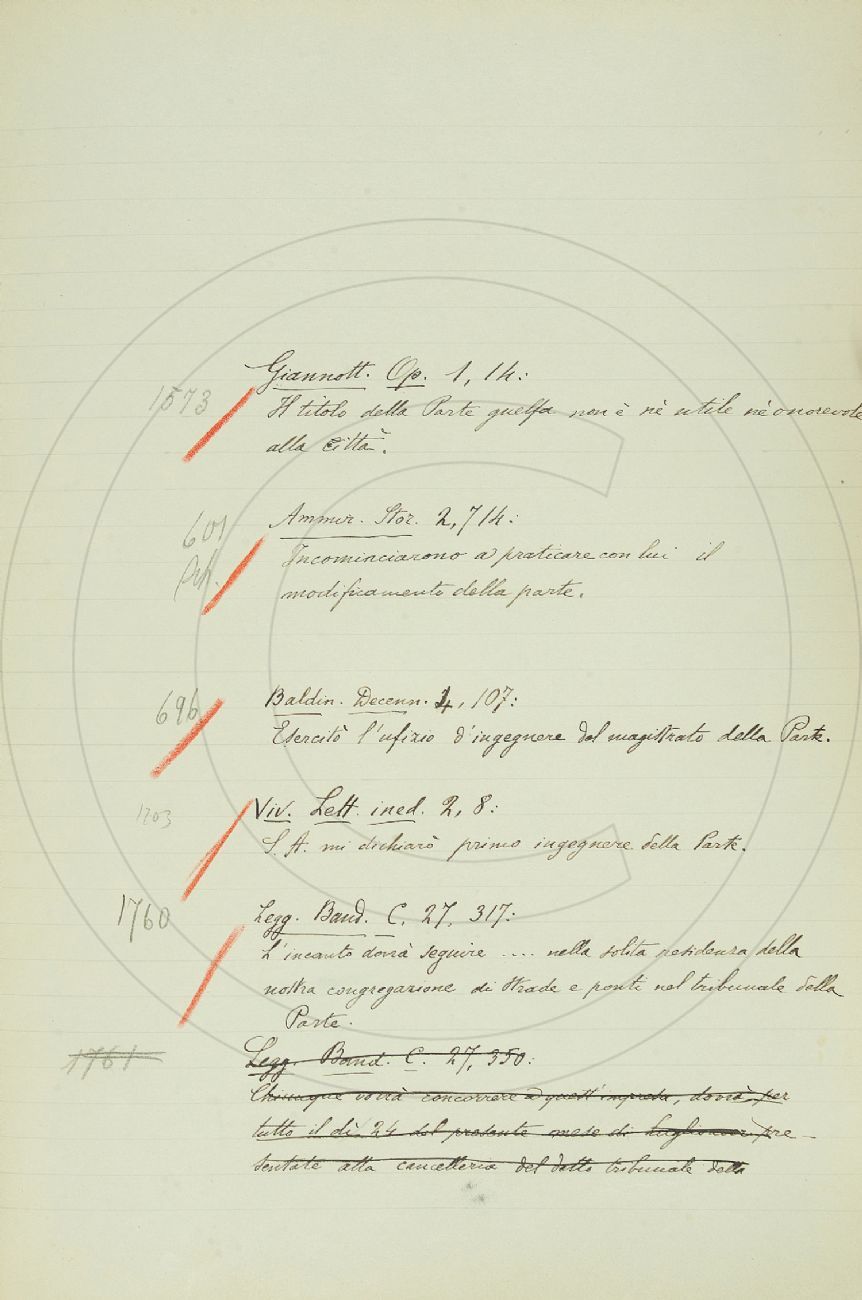 1573
Giannott. Op. 1, 14:
Il titolo della Parte guelfa non è nè utile nè onorevole
alla Città.
601
Ammir. Stor. 2, 714:
Incominciarono a praticare con lui il
modificamento della parte.
696
Baldin. Decenn. 4, 107:
Esercitò l'ufizio d'ingegnere del magistrato della Parte.
1703
Viv. Lett. ined. 2, 8:
S. A. mi dichiarò primo ingegnere della Parte.
1760
Legg. Band. C. 27, 317:
L'incanto dovrà seguire .... nella solita residenza della
nostra congregazione di strade e ponti nel tribunale della
Parte.
1761
Legg. Band. C. 27, 350:
Chiunque vorrà concorrere a quest'impresa, dovrà per
tutto il dì 24 del presente mese di pre-
sentate alla cancelleria del detto tribunale della